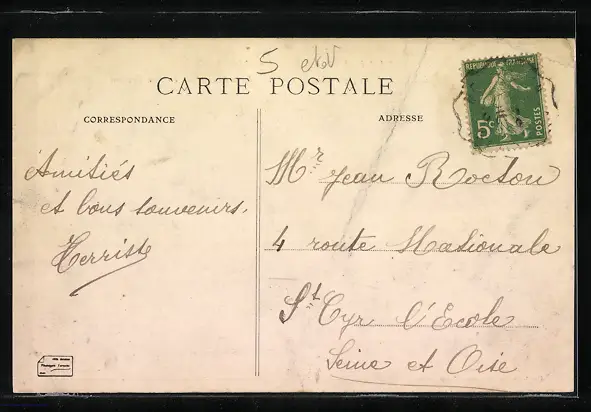 5
CARTE POSTALE
CORRESPONDANCE
ADRESSE
REPUBLIQUE FRANÇAISE
5c
POSTES
Amitiés
et bons souvenirs.
Mr Jean Rocton
4 route Nationale
St Cyr l'Ecole
Seine et Oise